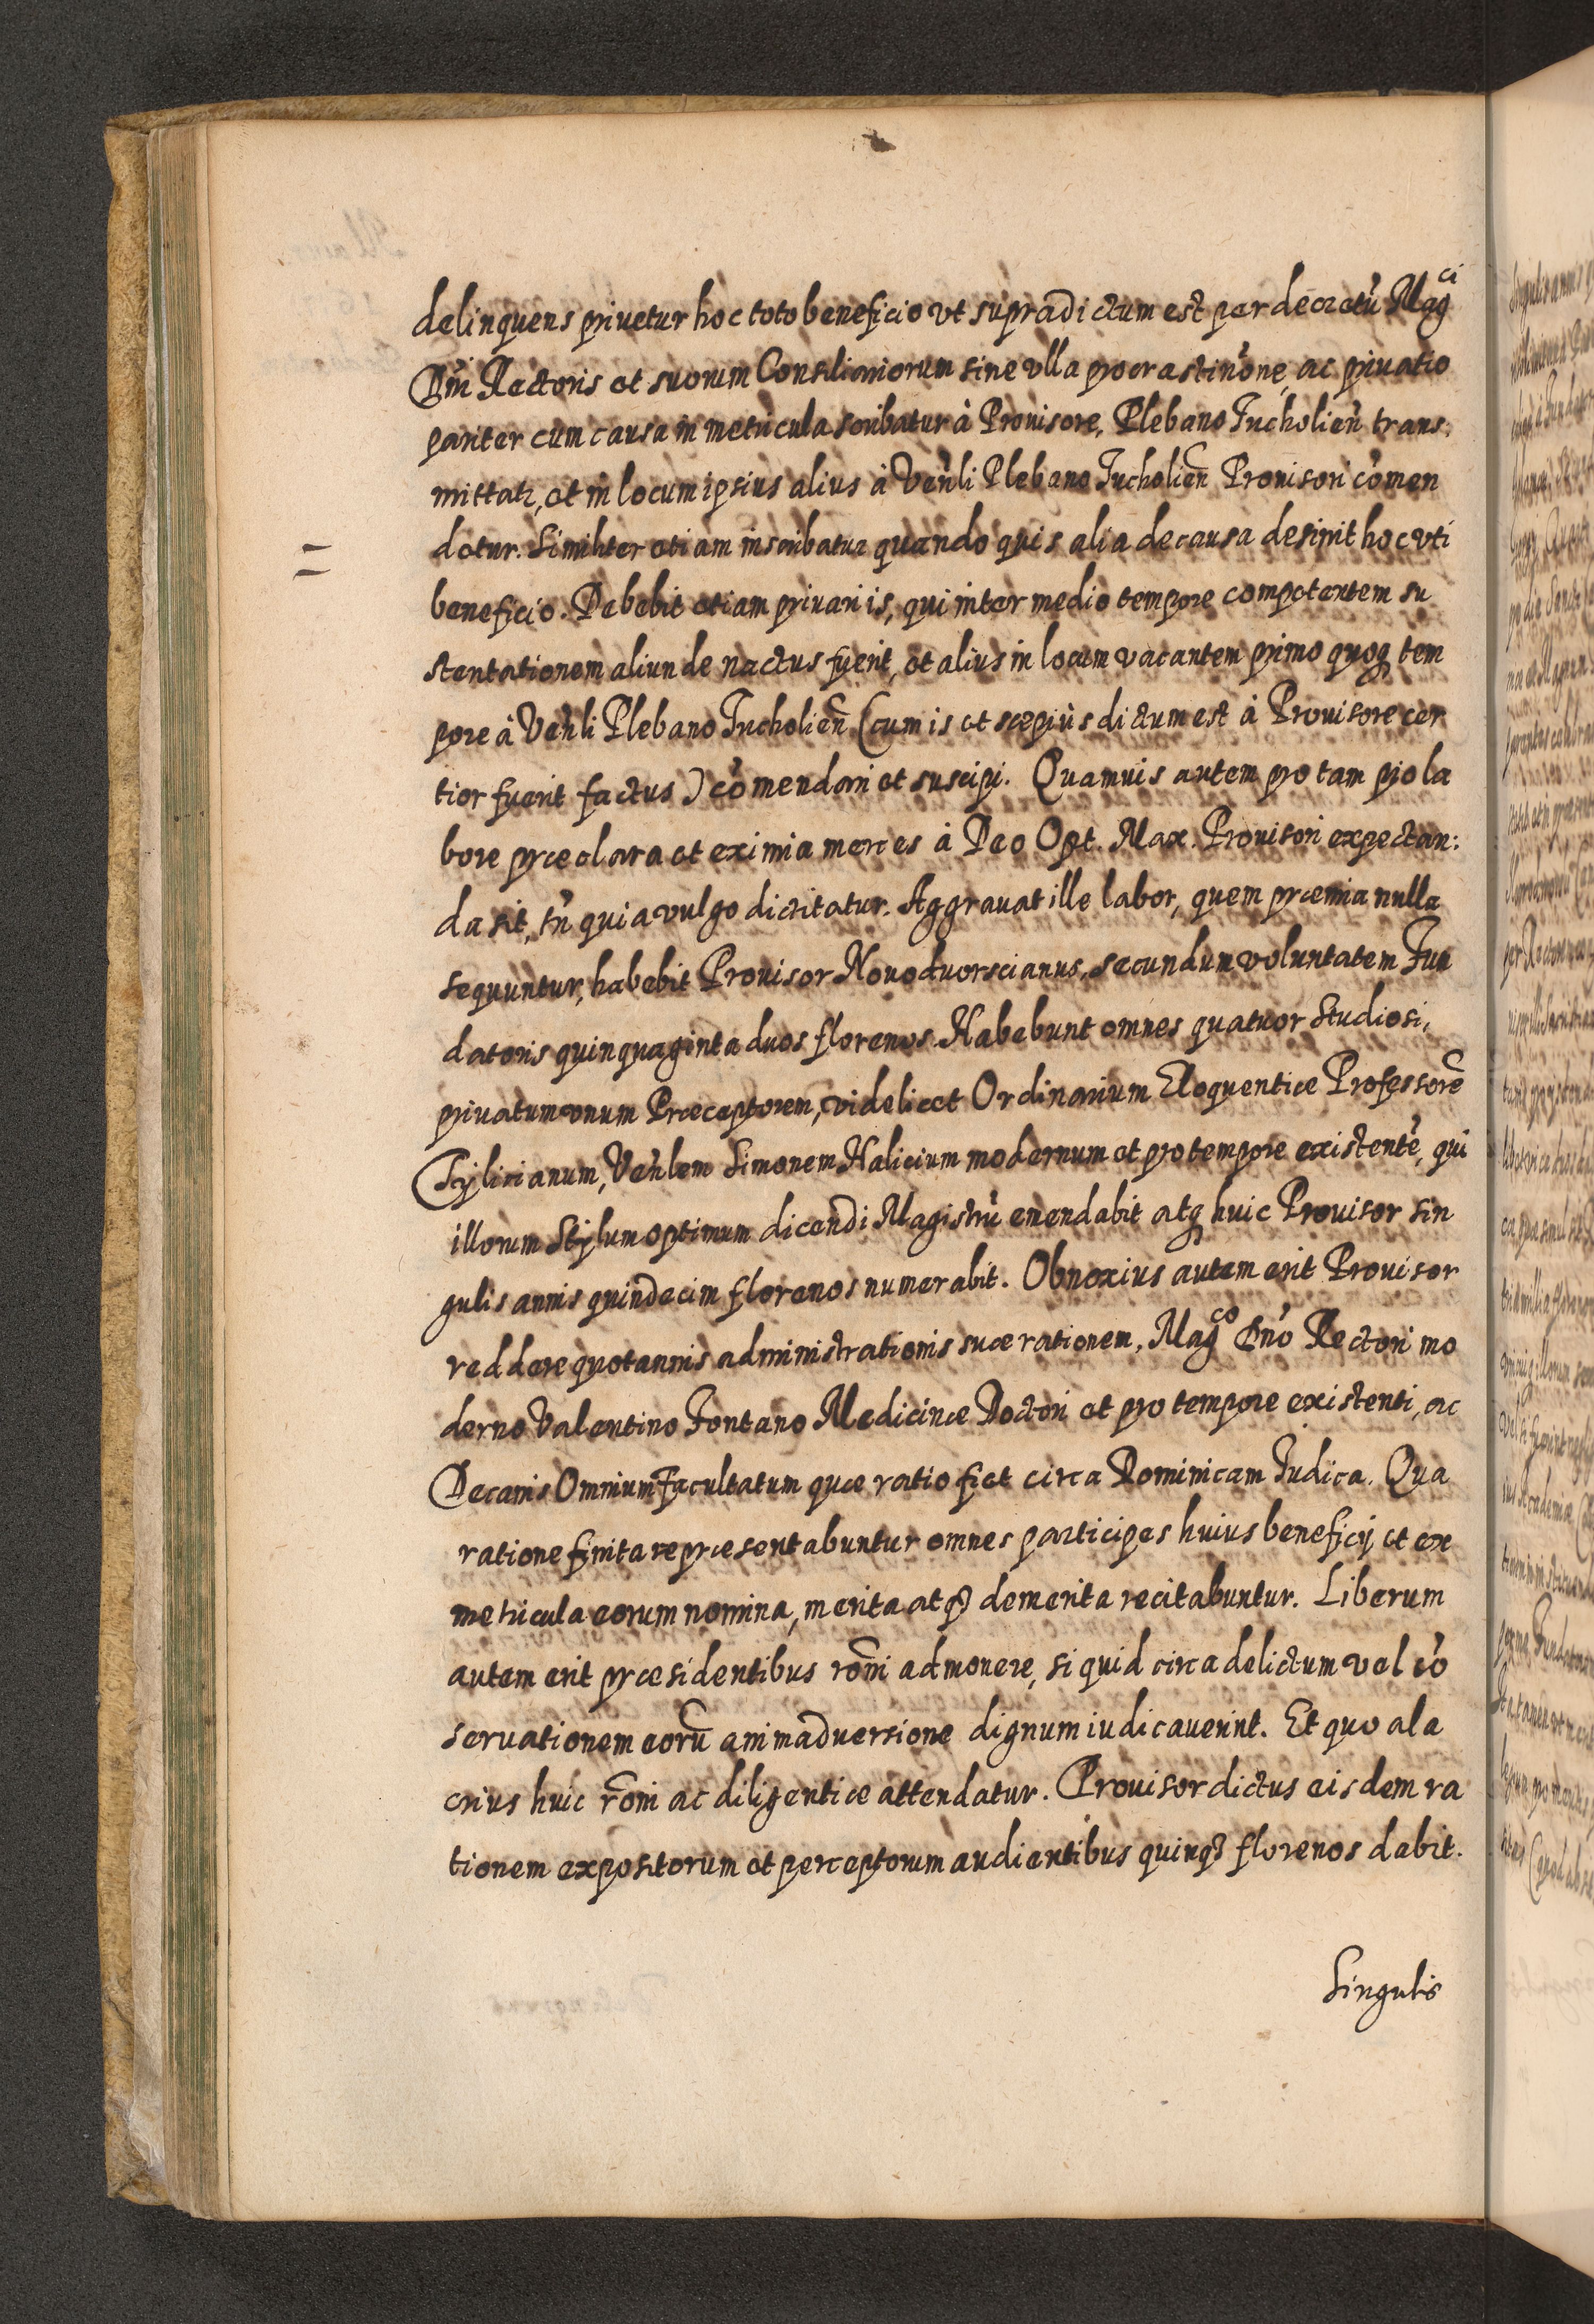 delinquens priuetur hoc toto beneficio vt supradictum est per decretũ Mag^ci
Dñi Rectoris et suorum Consiliariorum sine vlla procrastinõne, ac priuatio
pariter cum causa in metricula scribatur à Prouisore, Plebano Tucholień trans:
mittatr, et in locum ipsius alius à Veñli Plebano Tucholień Prouisori cõmen
detur. Similiter etiam inscribatur quando quis alia de causa desinit hoc vti
beneficio. Debebit etiam priuari is, qui inter medio tempore competentem su
stentationem aliunde nactus fuerit, et alius in locum vacantem primo quoq tem
pore à Veñli Plebano Tucholień (cum is vt sæpiùs dictum est à Prouisore cer
tior fuerit factus) cõmendari et suscipi. Quamuis autem pro tam pio la
bore præclara et eximia merces à Deo Opt. Max. Prouisori expectan:
da sit, tñ quia vulgo dictitatur. Aggrauat ille labor, quem præmia nulla
sequuntur, habebit Prouisor Nouoduorscianus, secundum voluntatem Fun
datoris quinquaginta duos florenos. Habebunt omnes quatuor Studiosi,
priuatum vnum Præceptorem, videlicet Ordinarium Eloquentiæ Professorẽ
Tylicianum, Veñlem Simonem Halicium modernum et pro tempore existentẽ, qui
illorum Stylum optimum dicendi Magistrũ emendabit atq huic Prouisor sin
gulis annis quindecim florenos numerabit. Obnoxius autem erit Prouisor
reddere quotannis administrationis suæ rationem, Mag^co Dño Rectori mo
derno Valentino Fontano Medicinæ Doctori et pro tempore existenti, ac
Decanis Omnium Facultatum quæ ratio fiet circa Dominicam Iudica. Qua
ratione finita repræsentabuntur omnes participes huius beneficij et ex
metricula eorum nomina, merita atq demerita recitabuntur. Liberum
autem erit præsidentibus rõni admonere, si quid circa delictum vel cõ
seruationem eorũ animaduersione dignum iudicauerint. Et quo ala
crius huic rõni ac diligentiæ attendatur. Prouisor dictus eisdem ra
tionem expositorum et perceptorum audientibus quinq florenos dabit.
Singulis